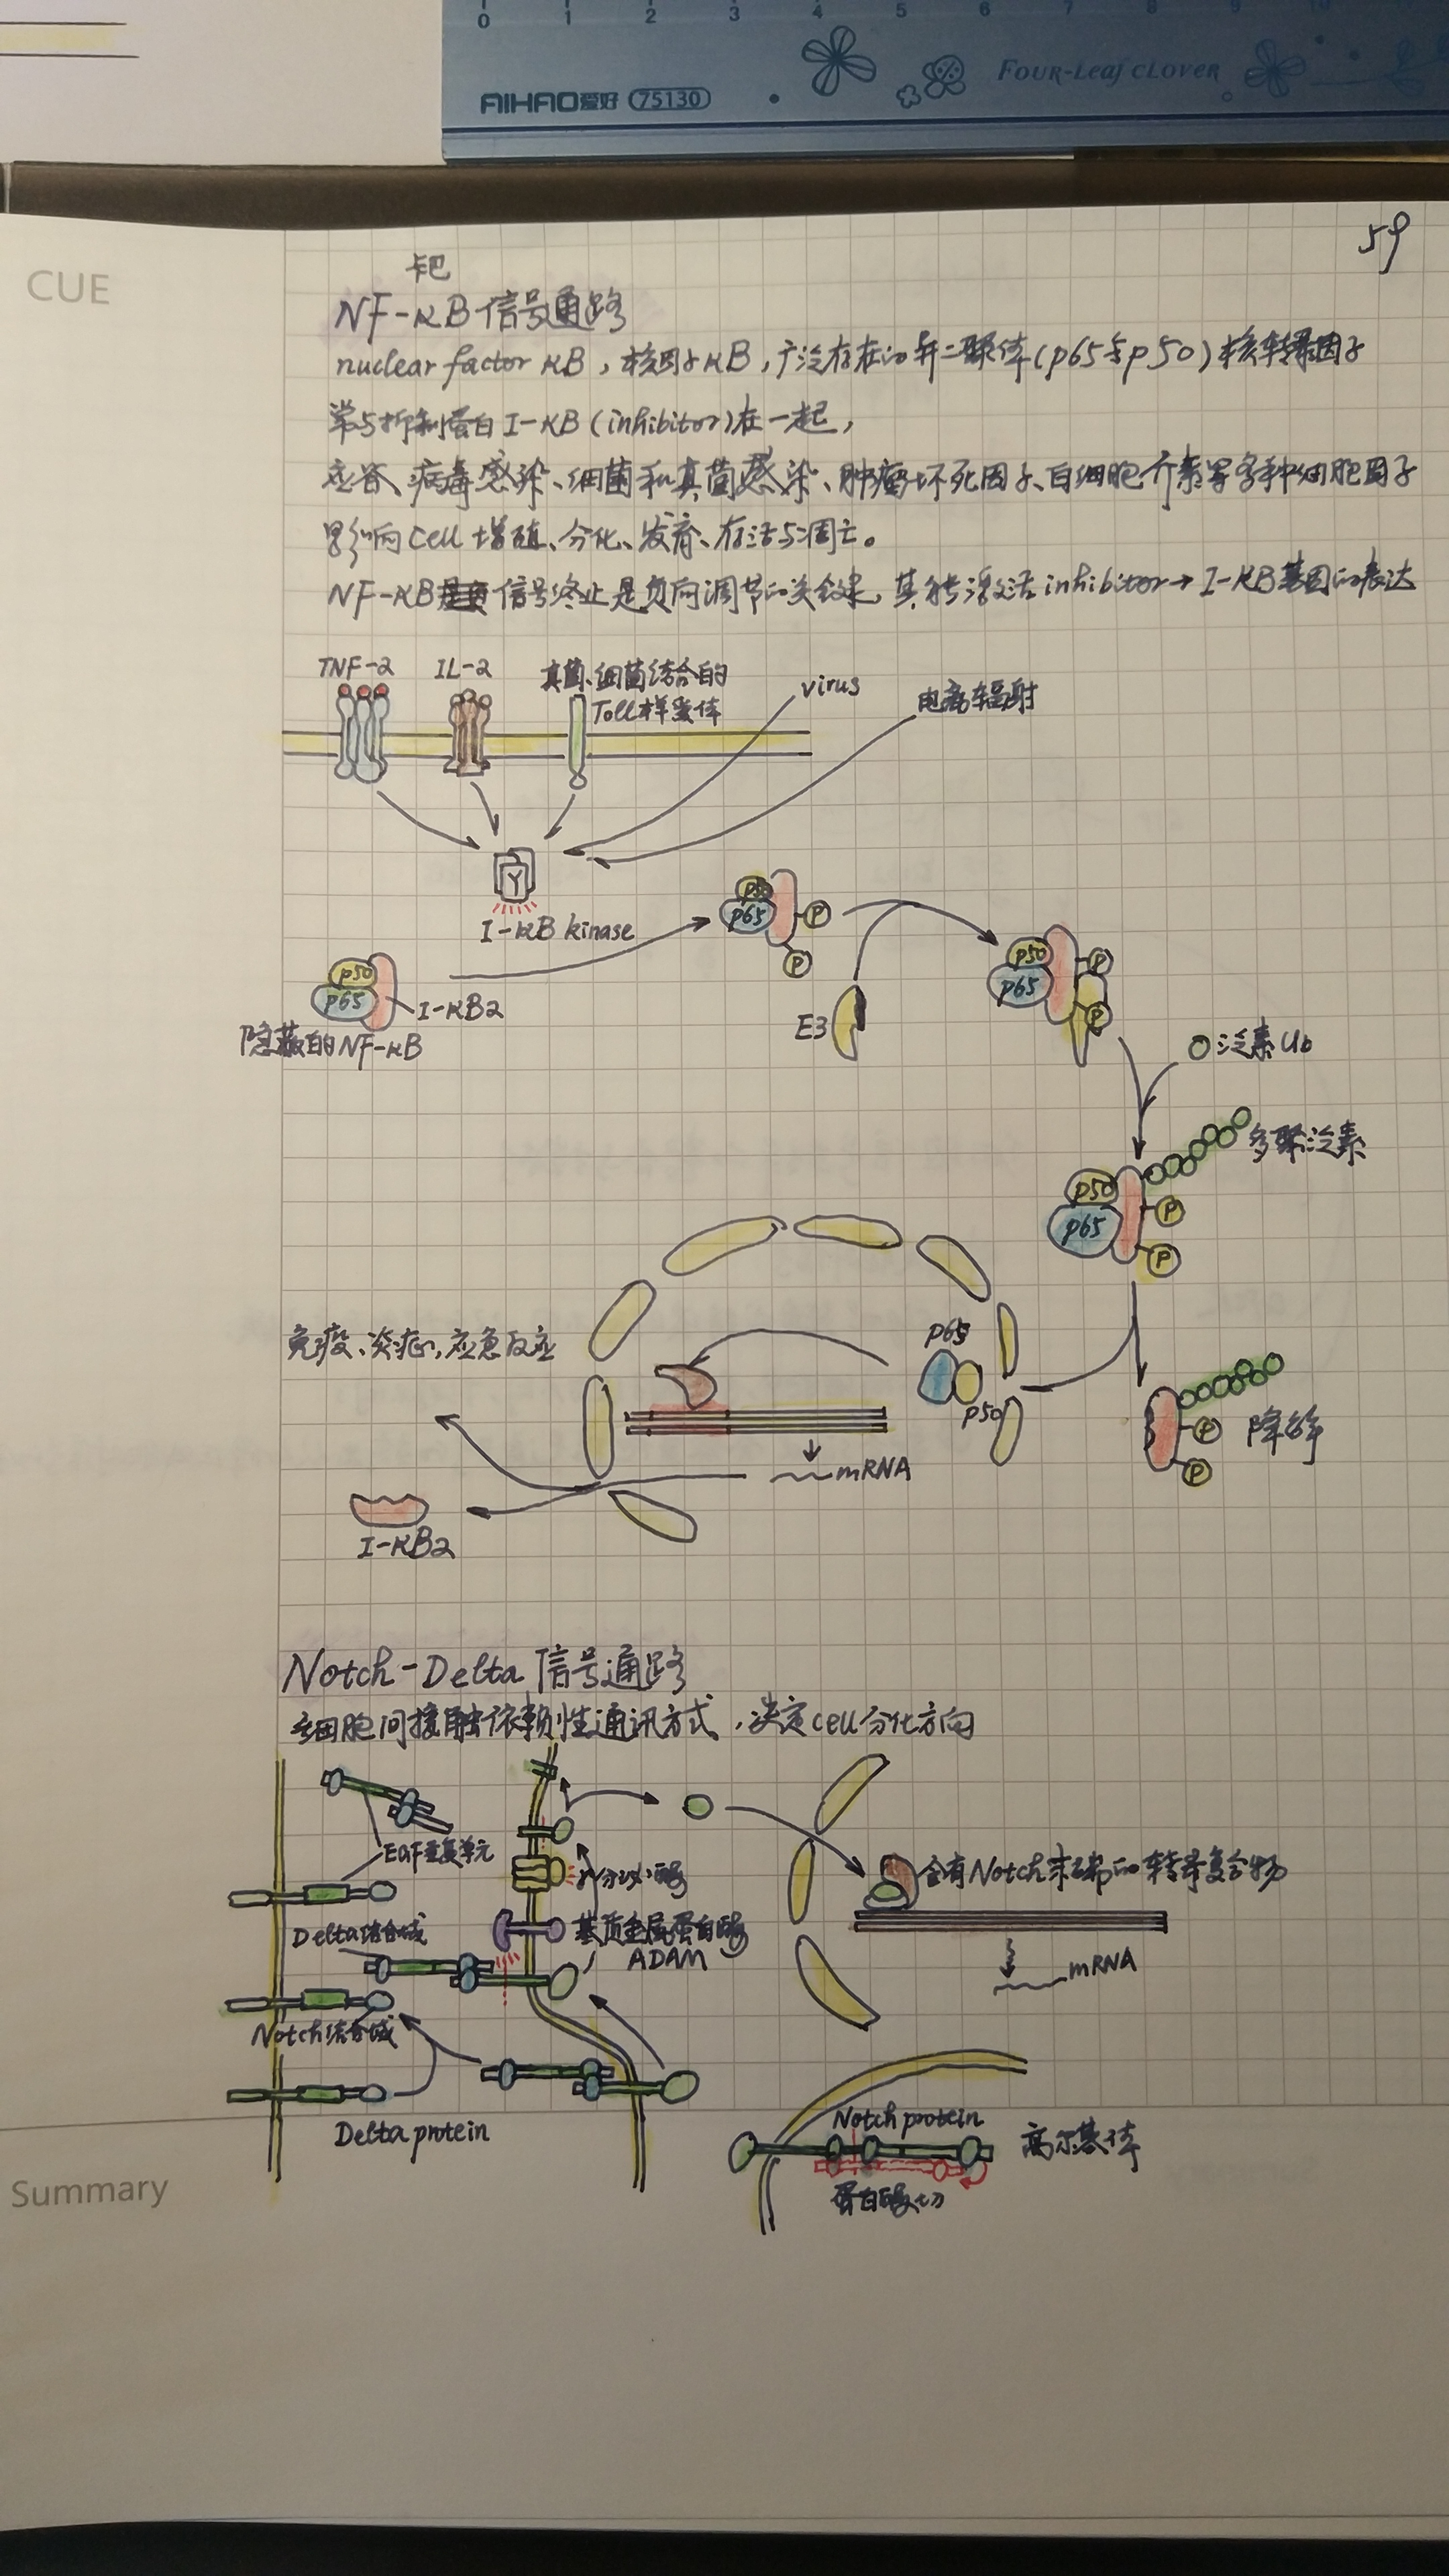 0 1 2 3 4 5 6 7 8 9 10
AIHAO爱好 75130
FOUR-Leaf CLOVER
59
CUE
卡巴
NF-κB信号通路
nuclear factor κB，核因子κB，广泛存在的异二聚体(p65与p50)核转录因子
常与抑制蛋白I-κB(inhibitor)在一起，
应答、病毒感染、细菌和真菌感染、肿瘤坏死因子、白细胞介素等多种细胞因子
影响cell增殖、分化、发育、存活与凋亡。
NF-κB信号终止是负向调节的关效果，其转激活inhibitor→I-κB基因的表达
TNF-2
IL-2
真菌、细菌结合的
Toll样受体
virus
电离辐射
I-κB kinase
p50
p65
P
P
p50
p65
I-κB2
隐蔽的NF-κB
E3
p50
p65
P
P
泛素Ub
多聚泛素
p50
p65
P
P
免疫、炎症，应急反应
p65
p50
mRNA
P
P
降解
I-κB2
Notch-Delta信号通路
细胞间接触依赖性通讯方式，决定cell分化方向
EGF重复单元
γ分泌酶
含有Notch末端的转录复合物
Delta结合域
基质金属蛋白酶
ADAM
mRNA
Notch结合域
Delta protein
Notch protein
高尔基体
蛋白酶切
Summary